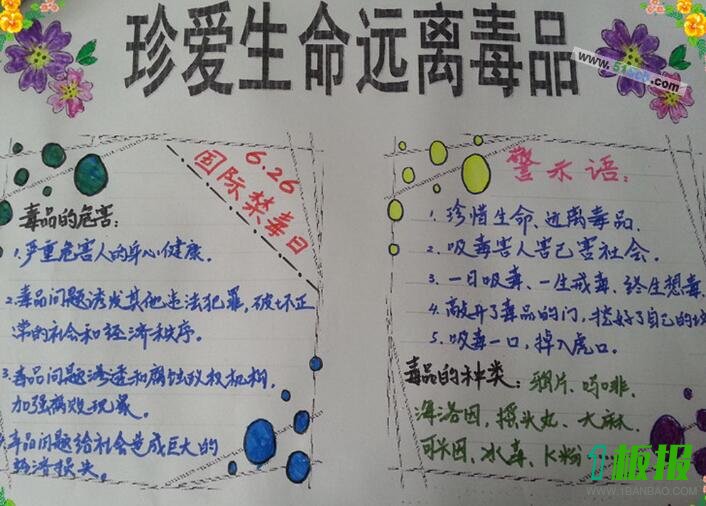 珍爱生命远离毒品
www.51sch.com
6.26
国际禁毒日
毒品的危害:
1.严重危害人的身心健康.
2.毒品问题诱发其他违法犯罪,破坏正
常的社会和经济秩序。
3.毒品问题渗透和腐蚀政权机构,
加强腐败现象。
4.毒品问题给社会造成巨大的
经济损失。
警示语:
1.珍惜生命、远离毒品.
2.吸毒害人害己害社会.
3.一日吸毒、一生戒毒、终生想毒.
4.敲开了毒品的门,挖好了自己的
5.吸毒一口,掉入虎口.
毒品的种类:鸦片、吗啡、
海洛因、摇头丸、大麻、
可卡因、冰毒、K粉
板报
WWW.1BANBAO.COM